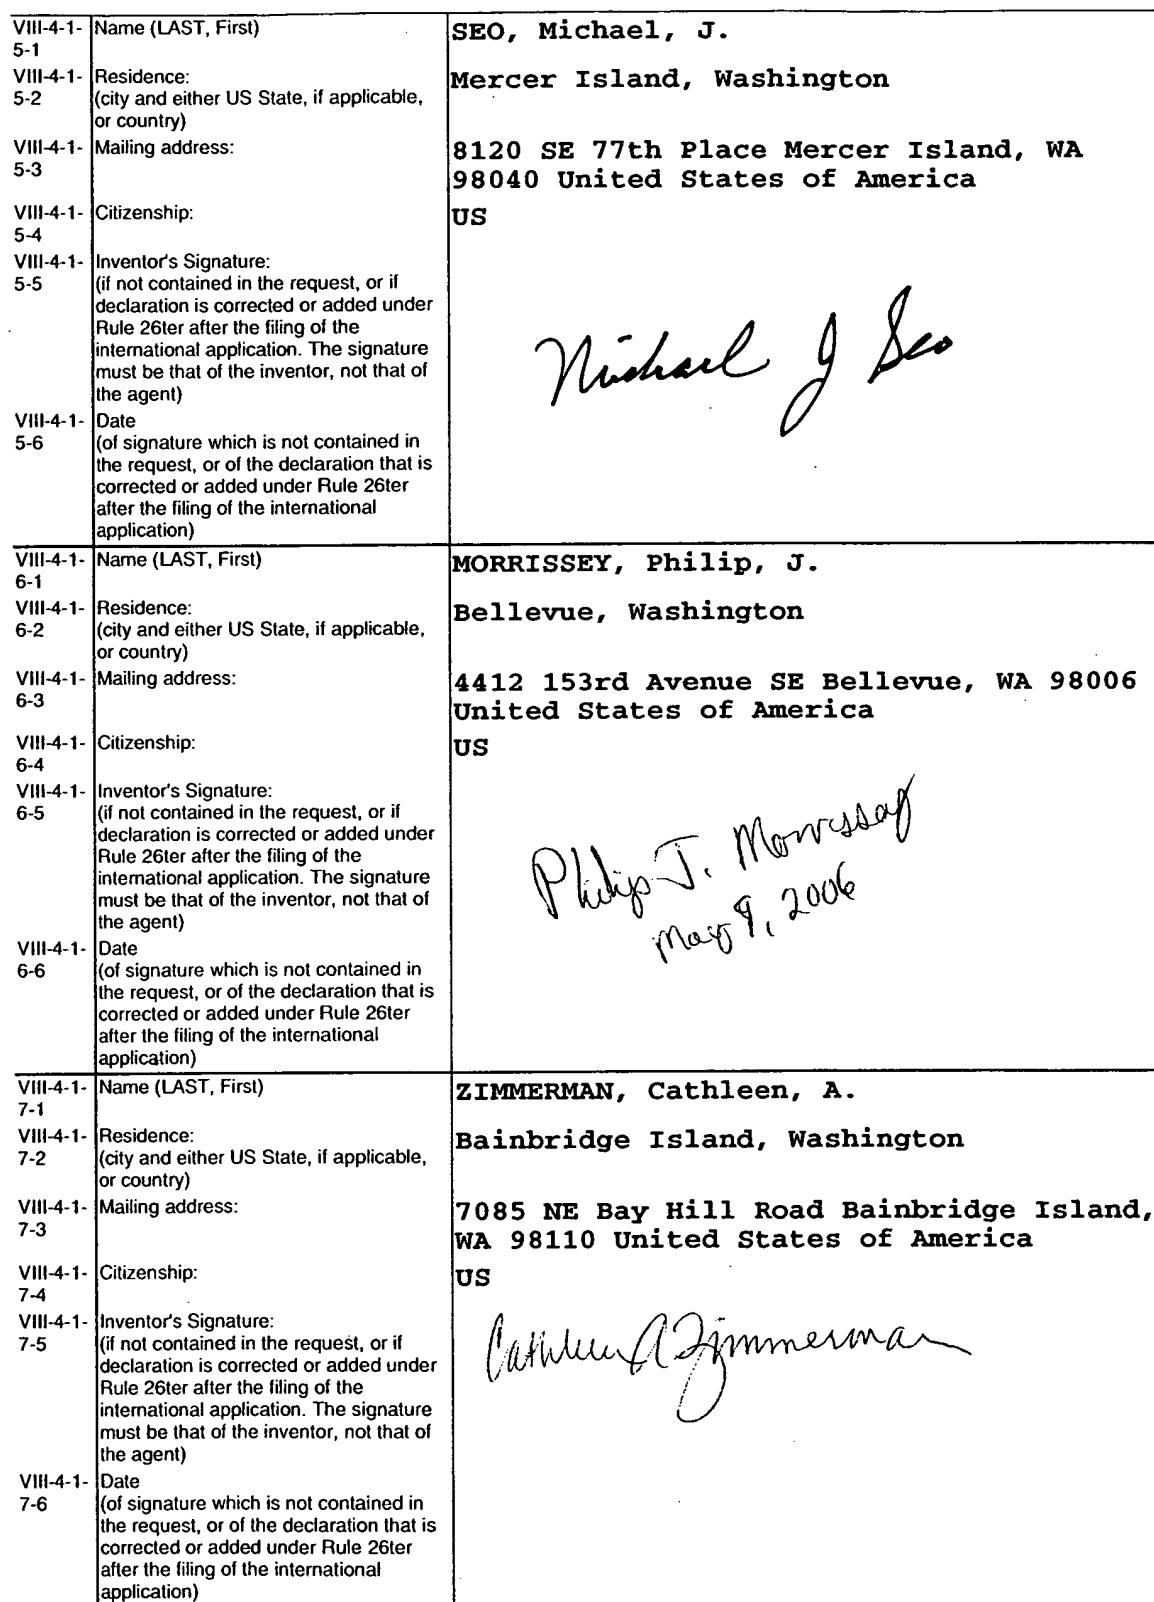 VIII-4-1-5-1 Name (LAST, First) SEO, Michael, J.
VIII-4-1-5-2 Residence:
(city and either US State, if applicable,
or country)
Mercer Island, Washington
VIII-4-1-5-3 Mailing address:
8120 SE 77th Place Mercer Island, WA
98040 United States of America
VIII-4-1-5-4 Citizenship: US
VIII-4-1-5-5 Inventor's Signature:
(if not contained in the request, or if
declaration is corrected or added under
Rule 26ter after the filing of the
international application. The signature
must be that of the inventor, not that of
the agent)
Michael J Seo
VIII-4-1-5-6 Date
(of signature which is not contained in
the request, or of the declaration that is
corrected or added under Rule 26ter
after the filing of the international
application)
VIII-4-1-6-1 Name (LAST, First) MORRISSEY, Philip, J.
VIII-4-1-6-2 Residence:
(city and either US State, if applicable,
or country)
Bellevue, Washington
VIII-4-1-6-3 Mailing address:
4412 153rd Avenue SE Bellevue, WA 98006
United States of America
VIII-4-1-6-4 Citizenship: US
VIII-4-1-6-5 Inventor's Signature:
(if not contained in the request, or if
declaration is corrected or added under
Rule 26ter after the filing of the
international application. The signature
must be that of the inventor, not that of
the agent)
Philip J. Morrissey
May 9, 2006
VIII-4-1-6-6 Date
(of signature which is not contained in
the request, or of the declaration that is
corrected or added under Rule 26ter
after the filing of the international
application)
VIII-4-1-7-1 Name (LAST, First) ZIMMERMAN, Cathleen, A.
VIII-4-1-7-2 Residence:
(city and either US State, if applicable,
or country)
Bainbridge Island, Washington
VIII-4-1-7-3 Mailing address:
7085 NE Bay Hill Road Bainbridge Island,
WA 98110 United States of America
VIII-4-1-7-4 Citizenship: US
VIII-4-1-7-5 Inventor's Signature:
(if not contained in the request, or if
declaration is corrected or added under
Rule 26ter after the filing of the
international application. The signature
must be that of the inventor, not that of
the agent)
Cathleen A Zimmerman
VIII-4-1-7-6 Date
(of signature which is not contained in
the request, or of the declaration that is
corrected or added under Rule 26ter
after the filing of the international
application)